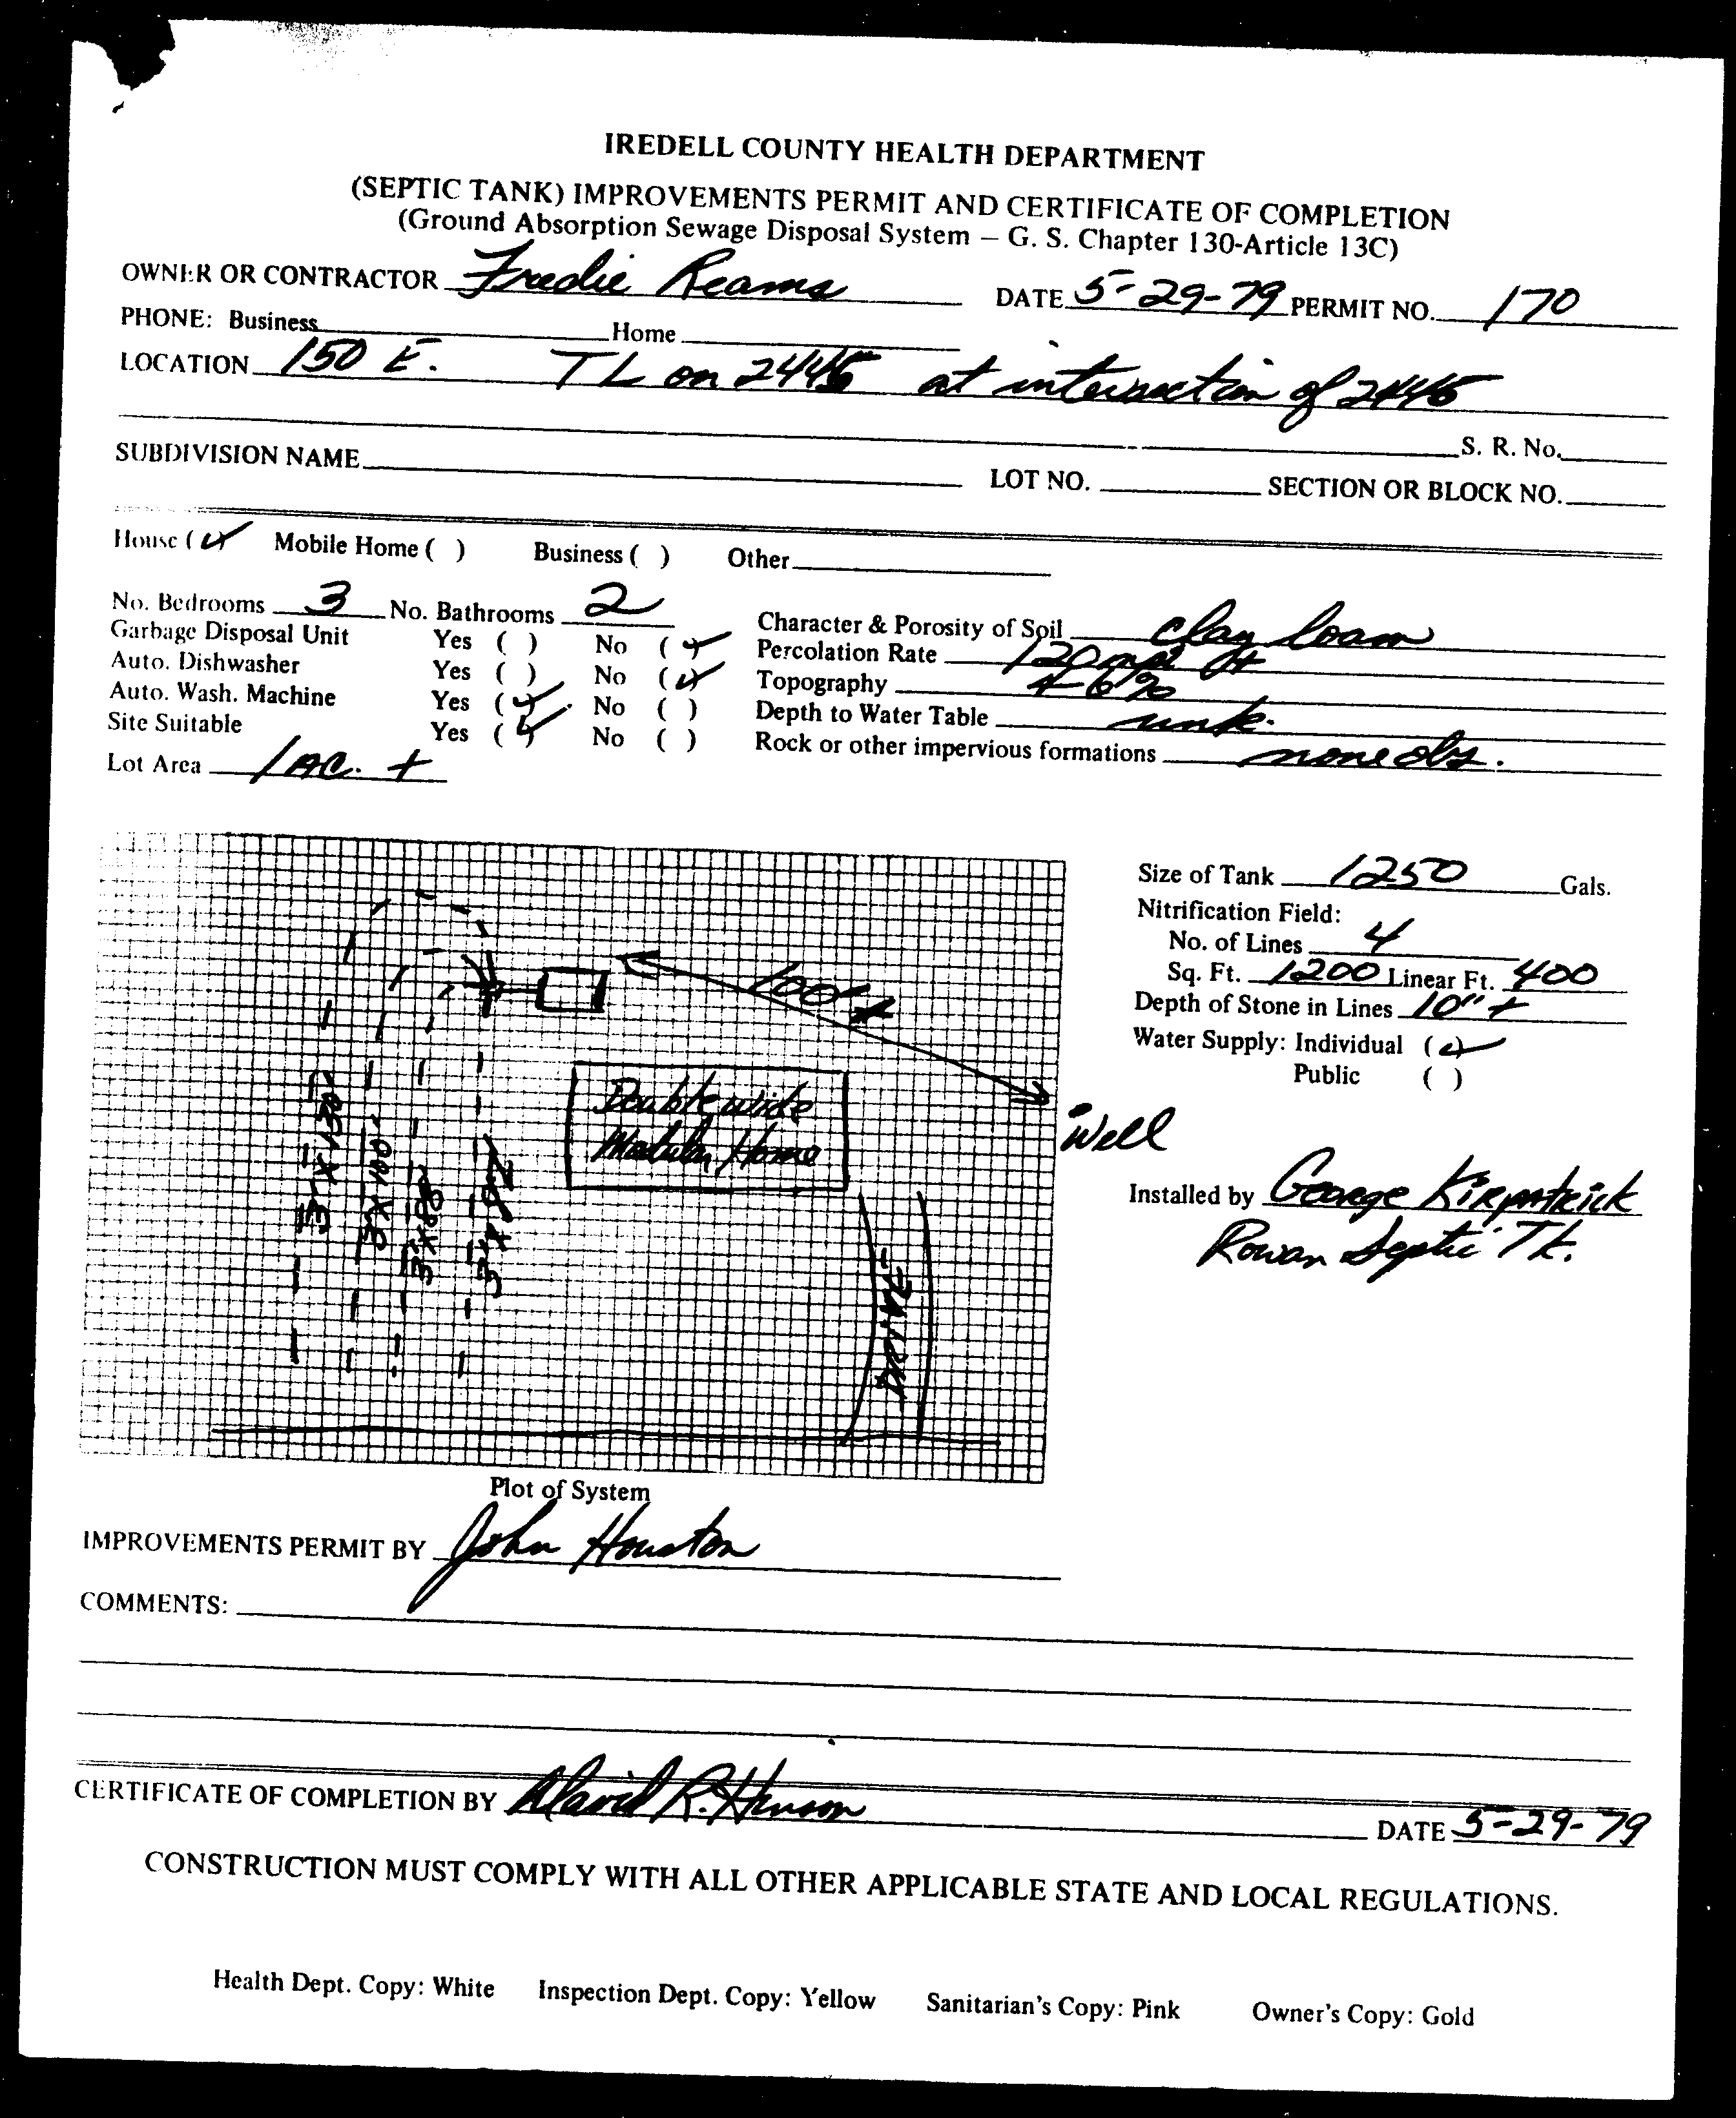 IREDELL COUNTY HEALTH DEPARTMENT
(SEPTIC TANK) IMPROVEMENTS PERMIT AND CERTIFICATE OF COMPLETION
(Ground Absorption Sewage Disposal System – G. S. Chapter 130-Article 13C)
OWNER OR CONTRACTOR Fredie Reams DATE 5-29-79 PERMIT NO. 170
PHONE: Business Home
LOCATION 150 E. TL on 2445 at intersection of 2445
S. R. No.
SUBDIVISION NAME LOT NO. SECTION OR BLOCK NO.
House (✓) Mobile Home ( ) Business ( ) Other
No. Bedrooms 3 No. Bathrooms 2
Garbage Disposal Unit Yes ( ) No (✓)
Auto. Dishwasher Yes ( ) No (✓)
Auto. Wash. Machine Yes (✓) No ( )
Site Suitable Yes (✓) No ( )
Lot Area 1 AC. +
Character & Porosity of Soil clay loam
Percolation Rate 120
Topography 6%
Depth to Water Table unk.
Rock or other impervious formations none obs.
100'
Double wide
Modular Home
Well
3' X 130'
3 X 100'
3' X 88'
3' X 82
DRIVE
Plot of System
Size of Tank 1250 Gals.
Nitrification Field:
No. of Lines 4
Sq. Ft. 1200 Linear Ft. 400
Depth of Stone in Lines 10" +
Water Supply: Individual (✓)
Public ( )
Installed by George Kirpatrick
Rowan Septic Tk.
IMPROVEMENTS PERMIT BY John Houston
COMMENTS:
CERTIFICATE OF COMPLETION BY David R. Henson
DATE 5-29-79
CONSTRUCTION MUST COMPLY WITH ALL OTHER APPLICABLE STATE AND LOCAL REGULATIONS.
Health Dept. Copy: White Inspection Dept. Copy: Yellow Sanitarian's Copy: Pink Owner's Copy: Gold